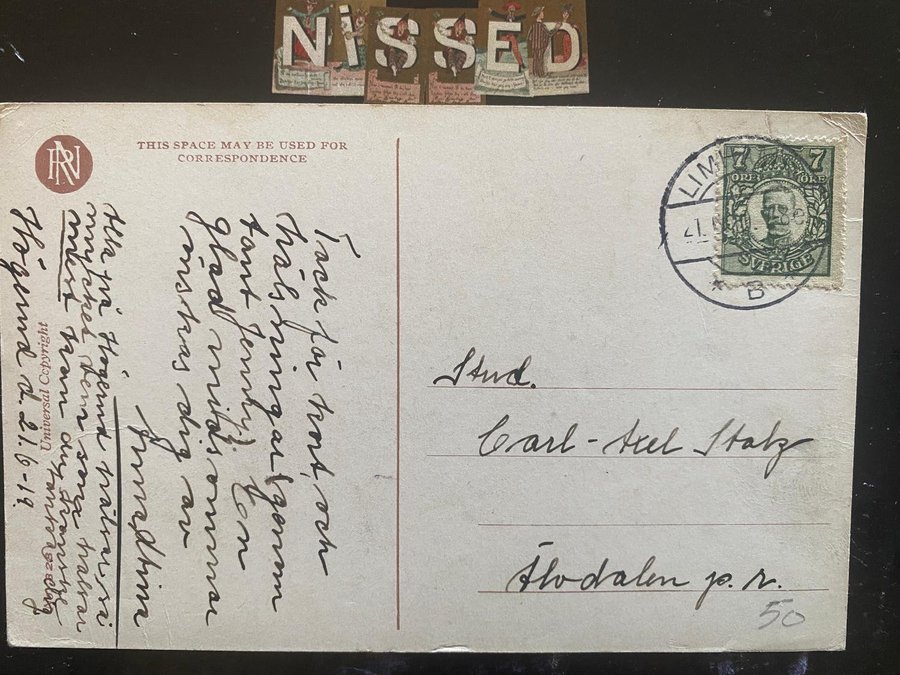 NISSED
RN
THIS SPACE MAY BE USED FOR
CORRESPONDENCE
Universal Copyright
7 7
ÖRE ÖRE
SVERIGE
LIM
21.6
B
Stud.
Carl-Axel Stalz
Älvdalen p. r.
50
Tack för kort, och
hälsningar genom
tant Jenny! En
glad midsommar
önskas dig av
Alla på Högerud hälsar, så
mycket, dem som hälsar
mest
Högerud d. 21.6-19